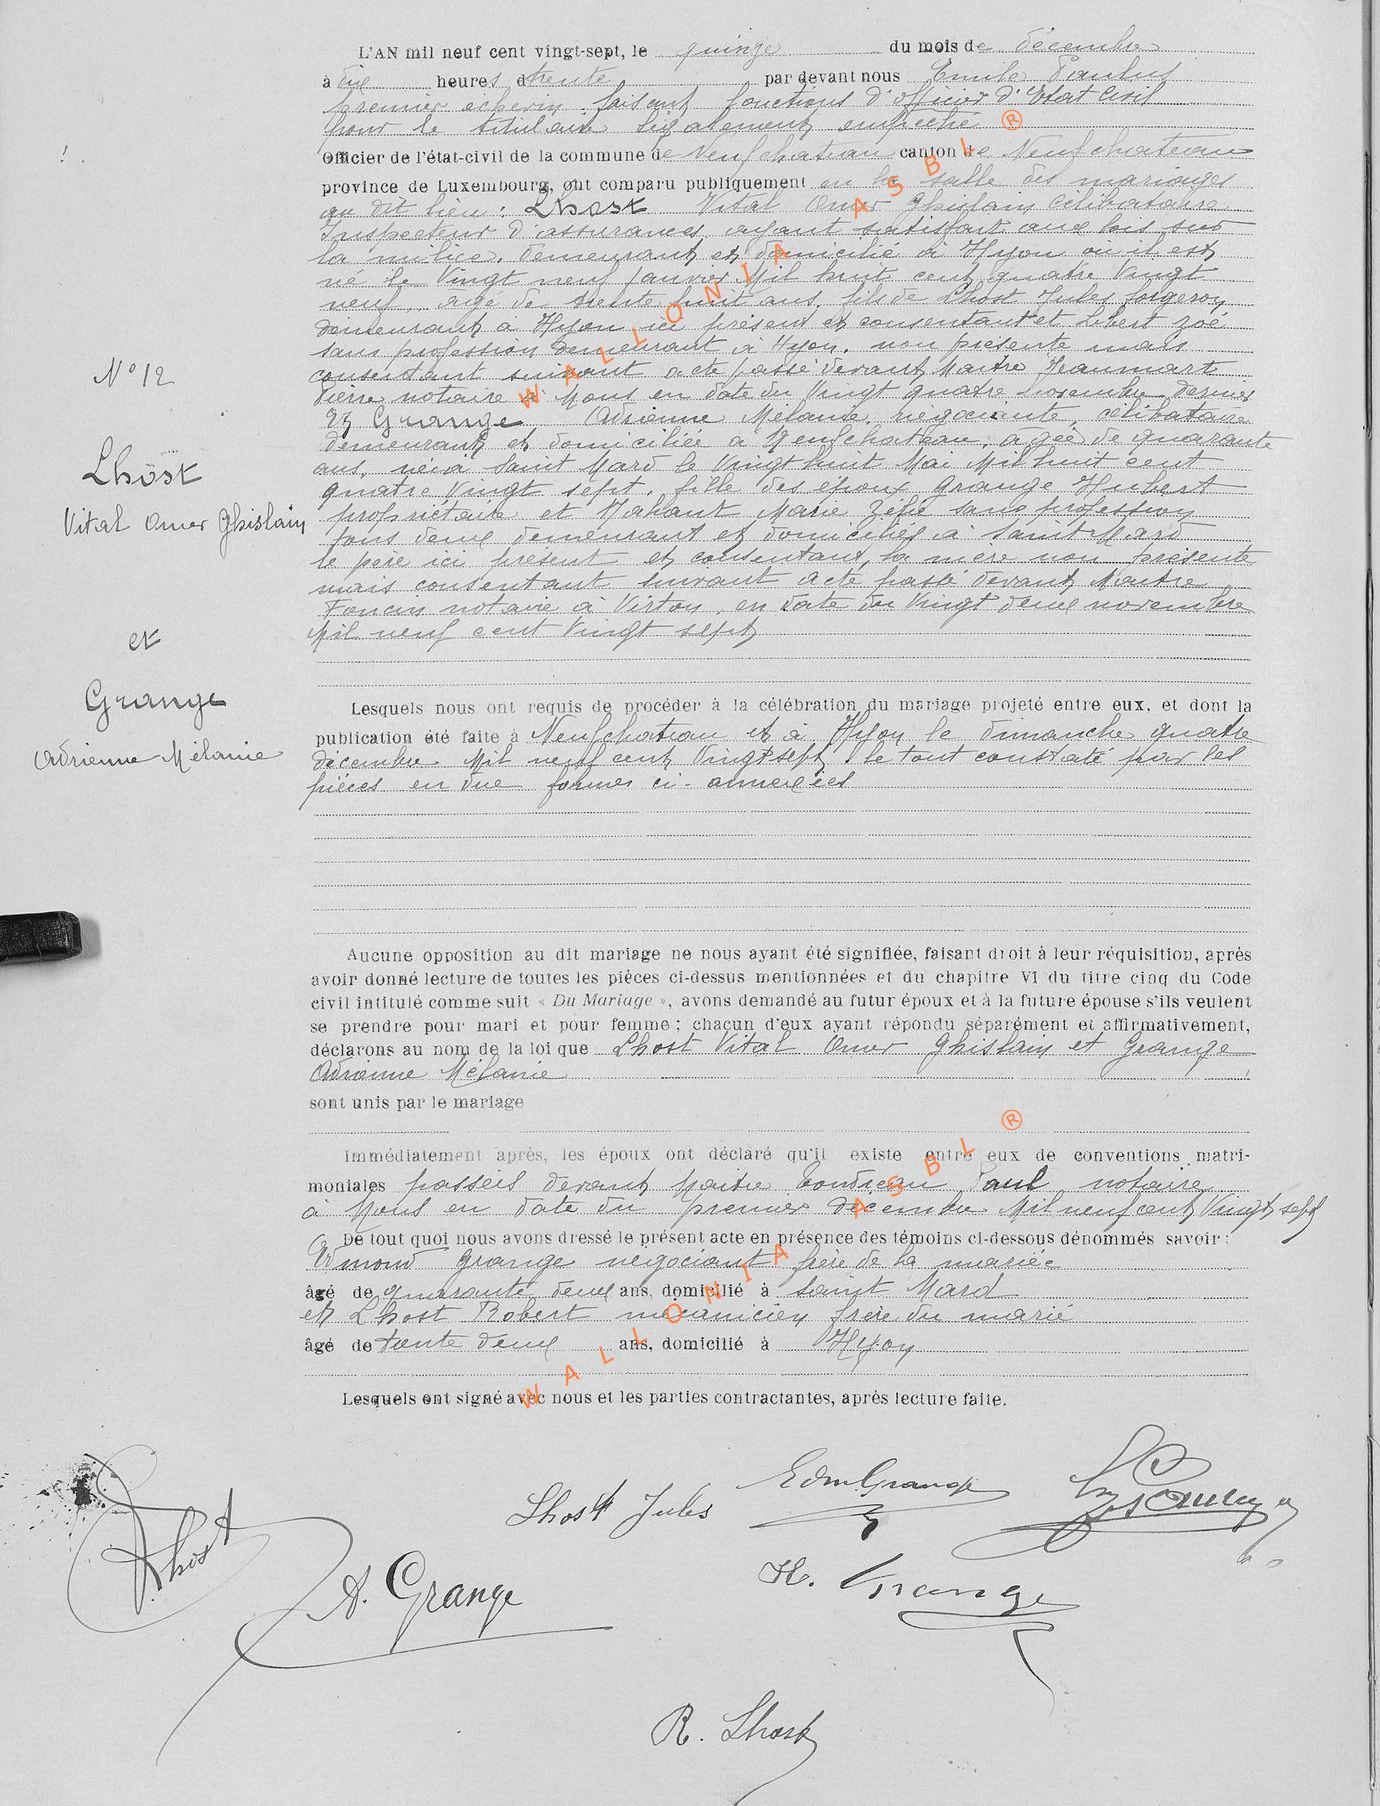 L'AN mil neuf cent vingt-sept, le quinze du mois de décembre
à dix heures trente par devant nous Emile Paulus
premier echevin faisant fonctions d'officier d'Etat Civil
pour le titulaire légalement empêché
Officier de l'état-civil de la commune de Neufchateau canton de Neufchateau
province de Luxembourg, ont comparu publiquement en la salle des mariages
au dit lieu : Lhost Vital Omer Ghislain célibataire
Inspecteur d'assurances ayant satisfait aux lois sur
la milice, demeurant et domicilié à Hyon où il est
né le Vingt neuf Janvier Mil huit cent quatre Vingt
neuf, agé de trente huit ans, fils de Lhost Jules forgeron
demeurant à Hyon ici présent et consentant et Libert Zoé
sans profession demeurant à Hyon, non présente mais
consentant suivant acte passé devant Maitre Heaumart
Pierre notaire à Mons en date du Vingt quatre novembre dernier
Et Grange Adrienne Mélanie, négociante, célibataire
demeurant et domiciliée à Neufchateau, agée de quarante
ans, née à Saint Mard le Vingt huit Mai Mil huit cent
quatre Vingt sept, fille des époux Grange Hubert
propriétaire et Mahaut Marie Zéfie sans profession
tous deux demeurant et domiciliés à Saint Mard
le père ici présent et consentant, la mère non présente
mais consentant suivant acte passé devant Maitre
notaire à Virton, en date du Vingt deux novembre
Mil neuf cent Vingt sept
Lesquels nous ont requis de procéder à la célébration du mariage projeté entre eux, et dont la
publication été faite à Neufchateau et à Hyon le dimanche quatre
décembre Mil neuf cent Vingt sept, le tout constaté par les
pièces en due formes ci-annexées
N° 12
Lhost
Vital Omer Ghislain
et
Grange
Adrienne Mélanie
Aucune opposition au dit mariage ne nous ayant été signifiée, faisant droit à leur réquisition, après
avoir donné lecture de toutes les pièces ci-dessus mentionnées et du chapitre VI du titre cinq du Code
civil intitulé comme suit « Du Mariage », avons demandé au futur époux et à la future épouse s'ils veulent
se prendre pour mari et pour femme ; chacun d'eux ayant répondu séparément et affirmativement,
déclarons au nom de la loi que Lhost Vital Omer Ghislain et Grange
Adrienne Mélanie
sont unis par le mariage
Immédiatement après, les époux ont déclaré qu'il existe entre eux de conventions matri-
moniales passées devant Maitre Paul notaire
à Mons en date du premier décembre Mil neuf cent Vingt sept
De tout quoi nous avons dressé le présent acte en présence des témoins ci-dessous dénommés savoir :
Edmond Grange négociant frère de la mariée
âgé de quarante deux ans, domicilié à Saint Mard
et Lhost Robert mécanicien frère du marié
âgé de trente deux ans, domicilié à Hyon
Lesquels ont signé avec nous et les parties contractantes, après lecture faite.
V. Lhost
Lhost Jules
Edm Grange
A. Grange
H. Grange
R. Lhost
WALLONIA ASBL ®
WALLONIA ASBL ®